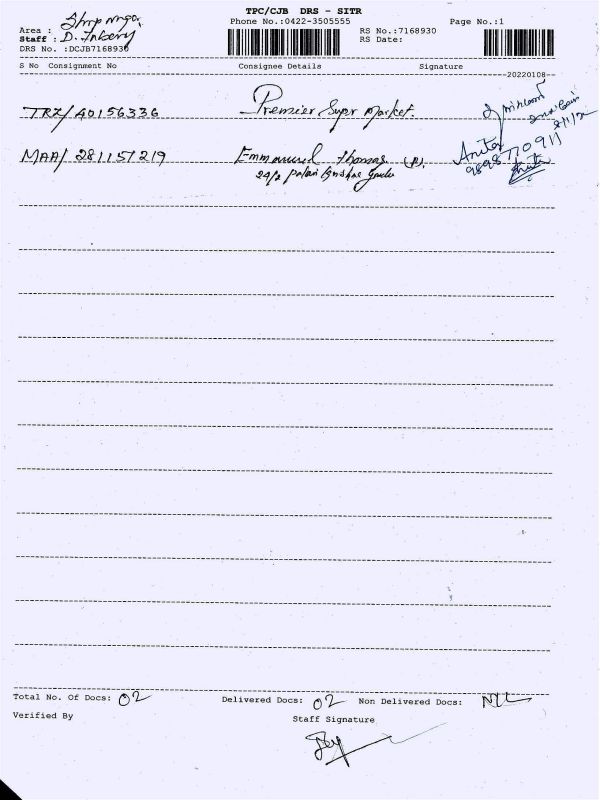 TPC/CJB DRS - SITR
Phone No.:0422-3505555
Page No.:1
Area :
RS No.:7168930
Staff : D.
RS Date:
DRS No. :DCJB7168930
S No Consignment No Consignee Details Signature
20220108
TRZ/ 40156336 Premier Supr Market.
MAA/ 281157219 Emmanuel Thomas
24/2
Anita
9898770911
8/1/22
Total No. Of Docs: 02 Delivered Docs: 02 Non Delivered Docs: NIL
Verified By Staff Signature